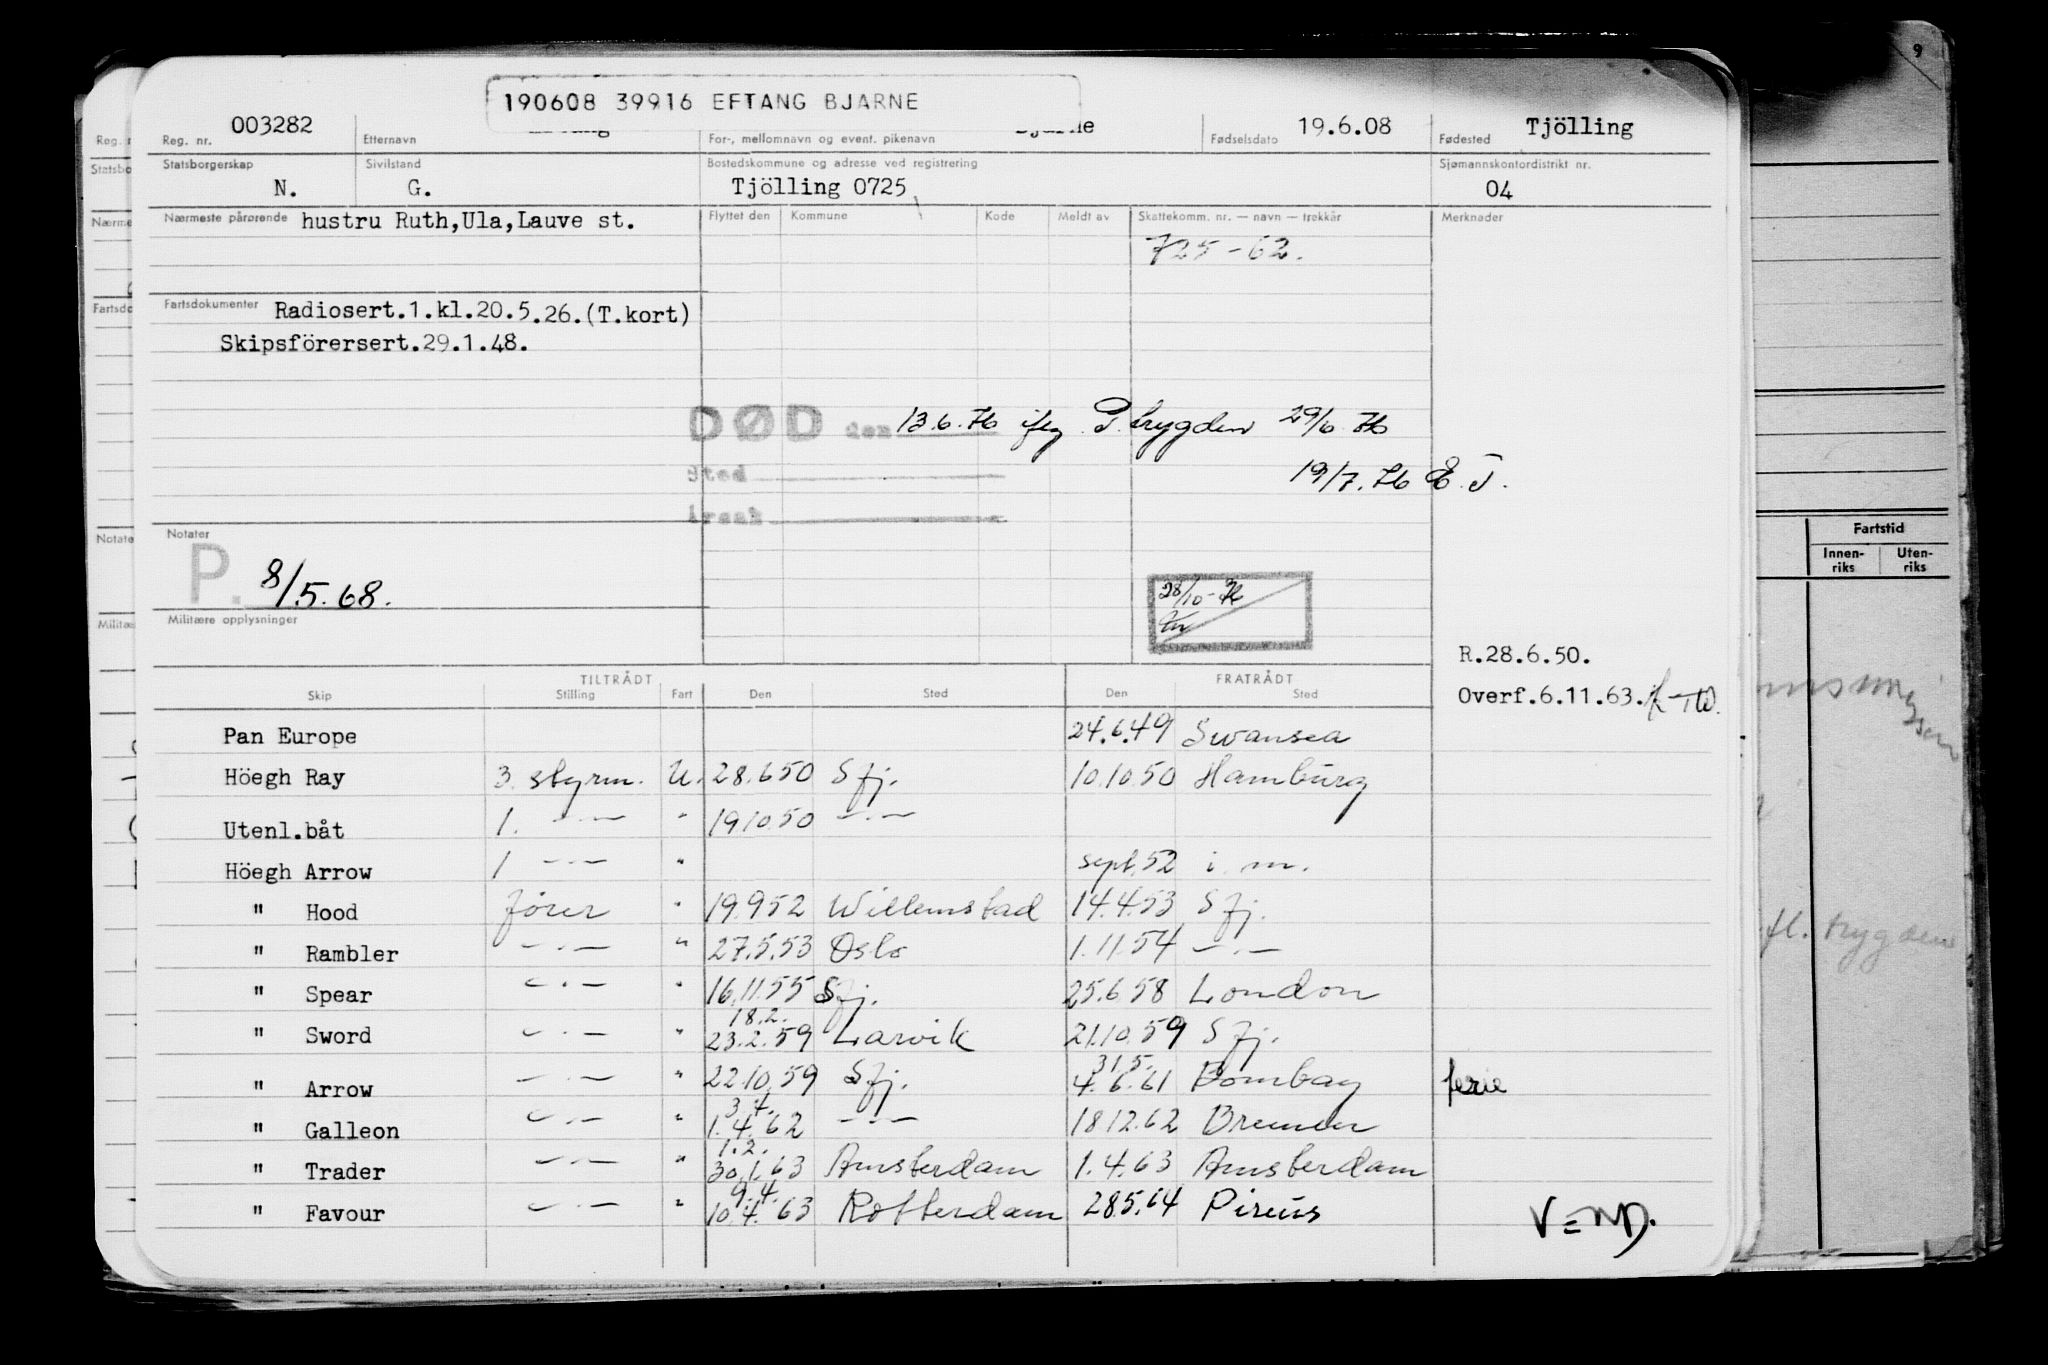 190608 39916 EFTANG BJARNE
9
Reg. nr. 003282 Etternavn For-, mellomnavn og event. pikenavn Fødselsdato 19.6.08 Fødested Tjölling
Statsborgerskap N. Sivilstand G. Bostedskommune og adresse ved registrering Tjölling 0725 Sjømannskontordistrikt nr. 04
Nærmeste pårørende hustru Ruth,Ula,Lauve st. Flyttet den Kommune Kode Meldt av Skattekomm. nr. — navn — trekkår Merknader
725-62.
Fartsdokumenter Radiosert.1.kl.20.5.26.(T.kort)
Skipsförersert.29.1.48.
DØD den 13.6.76 ifly P.trygden 29/6 76
Sted 19/7.76 E.J.
Årsak
Notater
P. 8/5.68.
28/10-76
Militære opplysninger
R.28.6.50.
Overf.6.11.63.
TILTRÅDT FRATRÅDT
Skip Stilling Fart Den Sted Den Sted
Pan Europe 24.6.49 Swansea
Höegh Ray 3. styrm. U. 28.6.50 Sfj. 10.10.50 Hamburg
Utenl.båt 1. —"— " 19.10.50 —"—
Höegh Arrow 1 —"— " sept.52 i.m.
" Hood fører " 19.9.52 Willemstad 14.4.53 Sfj.
" Rambler —"— " 27.5.53 Oslo 1.11.54 —"—
" Spear —"— " 16.11.55 Sfj. 25.6.58 London
18.2.
" Sword —"— " 23.2.59 Larvik 21.10.59 Sfj.
31.5.
" Arrow —"— " 22.10.59 Sfj. 4.6.61 Bombay ferie
3.4.
" Galleon —"— " 1.4.62 —"— 18.12.62 Bremen
1.2.
" Trader —"— " 30.1.63 Amsterdam 1.4.63 Amsterdam
9.4.
" Favour —"— " 10.4.63 Rotterdam 28.5.64 Pireus
V=ND.
Fartstid
Innen-
riks
Uten-
riks
fl. trygden